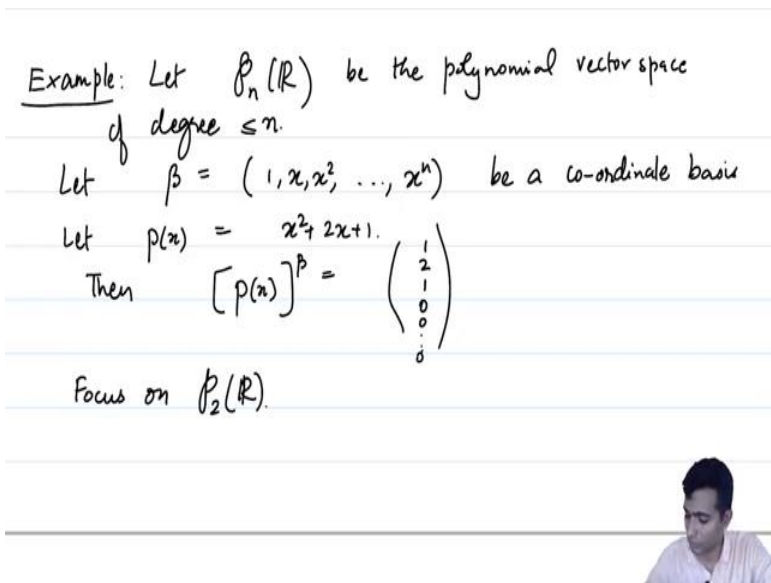 Example: Let P_n(ℝ) be the polynomial vector space
of degree ≤ n.
Let β = (1, x, x², ..., xⁿ) be a co-ordinate basis
Let p(x) = x² + 2x + 1.
Then [p(x)]^β = ( 1 2 1 0 0 ⋮ 0 )
Focus on P₂(ℝ).